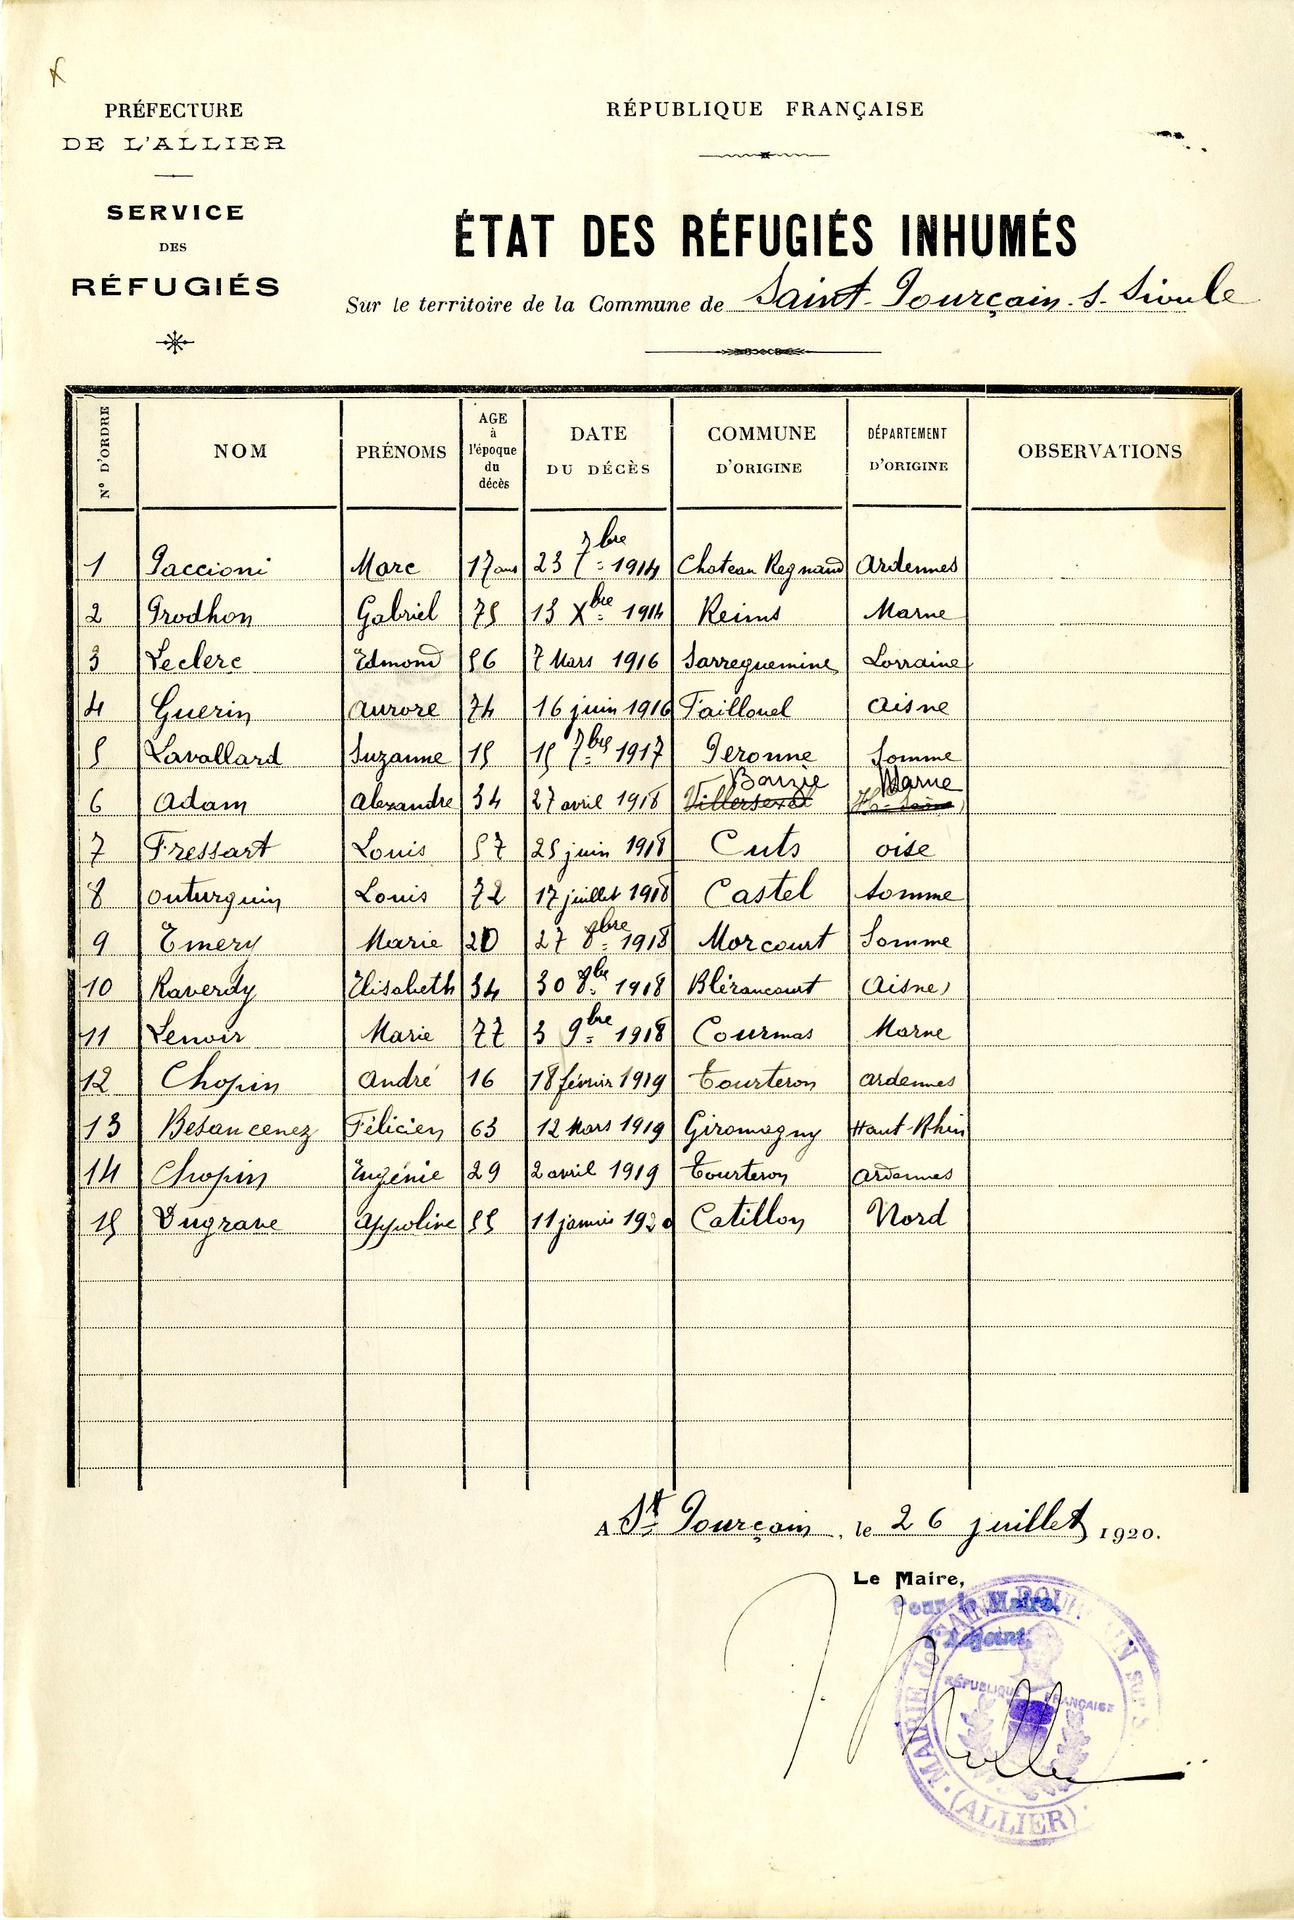 PRÉFECTURE
DE L'ALLIER
SERVICE
DES
RÉFUGIÉS
RÉPUBLIQUE FRANÇAISE
ÉTAT DES RÉFUGIÉS INHUMÉS
Sur le territoire de la Commune de Saint-Pourçain-s-Sioule
N° D'ORDRE NOM PRÉNOMS AGE à l'époque du décès DATE DU DÉCÈS COMMUNE D'ORIGINE DÉPARTEMENT D'ORIGINE OBSERVATIONS
1 Paccioni Marc 17 ans 23 7bre 1914 Chateau Regnaud Ardennes
2 Prodhon Gabriel 75 13 Xbre 1914 Reims Marne
3 Leclerc Edmond 56 7 Mars 1916 Sarreguemine Lorraine
4 Guerin Aurore 74 16 juin 1916 Faillouel Aisne
5 Lavallard Suzanne 15 15 7bre 1917 Peronne Somme
6 Adam Alexandre 34 27 avril 1918 Villersexel Bouzie H-Saône Marne
7 Fressart Louis 57 25 juin 1918 Cuts oise
8 onturquin Louis 72 17 juillet 1918 Castel Somme
9 Emery Marie 20 27 8bre 1918 Morcourt Somme
10 Raverdy Elisabeth 34 30 8bre 1918 Blérancourt Aisne
11 Lenoir Marie 77 3 9bre 1918 Courmas Marne
12 Chopin André 16 18 février 1919 Tourteron Ardennes
13 Besancenez Félicien 63 12 Mars 1919 Giromagny Haut-Rhin
14 Chopin Eugénie 29 2 avril 1919 Tourteron Ardennes
15 Dugrave Appoline 55 11 janvier 1920 Catillon Nord
A St Pourçain, le 26 juillet 1920.
Le Maire,
Pour le Maire,
l'Adjoint,
MAIRIE de SAINT POURÇAIN sur S
RÉPUBLIQUE FRANÇAISE
(ALLIER)